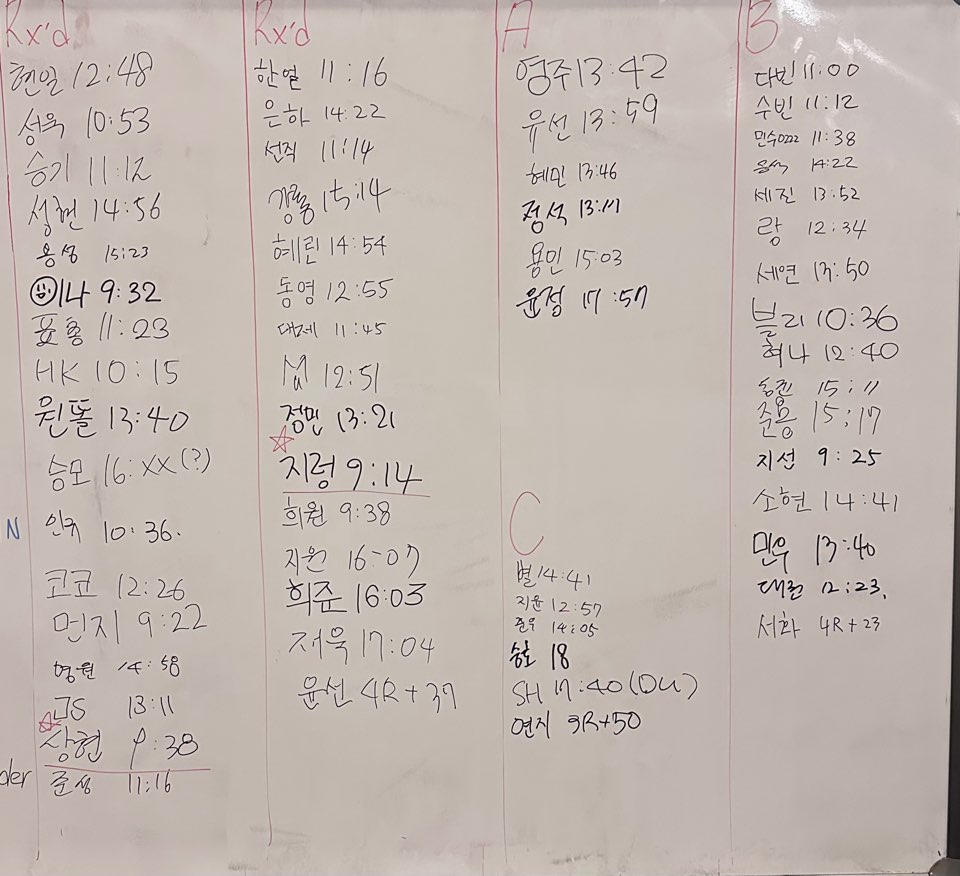 Rx'd
현일 12:48
성욱 10:53
승기 11:12
성현 14:56
용성 15:23
이나 9:32
표총 11:23
HK 10:15
원똘 13:40
승모 16:XX(?)
N
인귀 10:36.
코코 12:26
먼지 9:22
명원 14:58
JS 13:11
상현 9:38
der
준성 11:16
Rx'd
한얼 11:16
은하 14:22
선직 11:14
15:14
혜린 14:54
동영 12:55
대제 11:45
12:51
정민 13:21
지렁 9:14
희원 9:38
지원 16-07
희준 16:03
재욱 17:04
윤선 4R+37
A
영주 13:42
유선 13:59
혜민 13:46
정석 13:11
용민 15:03
윤정 17:57
C
별 14:41
지윤 12:57
준우 14:05
승호 18
SH 17:40(DU)
연지 3R+50
B
다빈 11:00
수빈 11:12
민수0222 11:38
14:22
세진 13:52
랑 12:34
세연 13:50
블리 10:36
혀나 12:40
15;11
준용 15;17
지선 9:25
소현 14:41
민우 13:40
12:23.
서화 4R+23